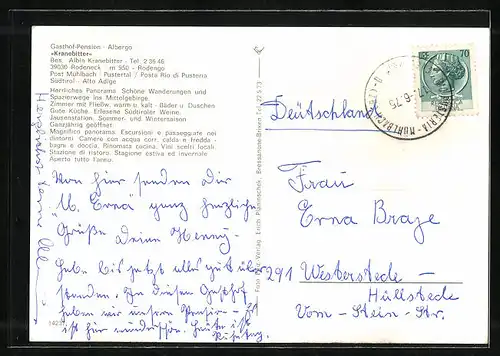 Gasthof-Pension - Albergo
«Kranebitter»
Bes. Albin Kranebitter - Tel. 2 36 46
39036 Rodeneck m 950 - Rodengo
Post Mühlbach / Pustertal / Posta Rio di Pusteria
Südtirol - Alto Adige
Herrliches Panorama. Schöne Wanderungen und
Spazierwege ins Mittelgebirge.
Zimmer mit Fließw. warm u. kalt - Bäder u. Duschen
Gute Küche. Erlesene Südtiroler Weine.
Jausenstation. Sommer- und Wintersaison
Ganzjährig geöffnet.
Magnifico panorama. Escursioni e passeggiate nei
dintorni. Camere con acqua corr. calda e fredda -
bagni e doccia. Rinomata cucina. Vini scelti locali.
Stazione di ristoro. Stagione estiva ed invernale
Aperto tutto l'anno.
Von hier senden Dir
"U. Erna" ganz herzliche
Grüße Deine Henny
Habe bis jetzt alles gut über
standen. In diesem Gasthof
haben wir unsere Pension
ist für wunderschön. Heute ist
Ruhetag.
Foto und Verlag Erich Planinschek, Bressanone-Brixen Tel.
70
6.75
Deutschland
Frau
Erna Braze
291 Westerstede -
Hüllstede
Vom-Stein-Str.